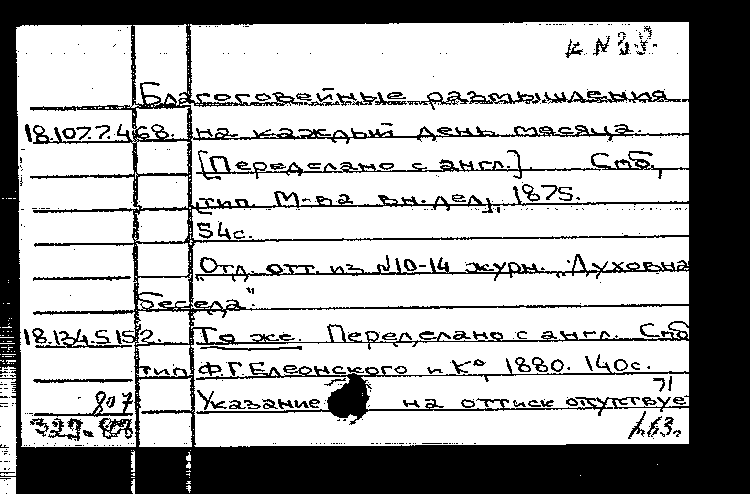 к N 38.
Благоговейные размышления
18.107.7.468. на каждый день месяца.
[Переделано с англ.]. Спб.,
тип. М-ва вн. дел, 1875.
54с.
"Отд. отт. из N10-14 журн. "Духовна
беседа."
18.134.5.152. То же. Переделано с англ. Спб
тип Ф.Г. Елеонского и К°, 1880. 140с.
807 Указание на оттиск отсутствуе
71
329-88 1.63.